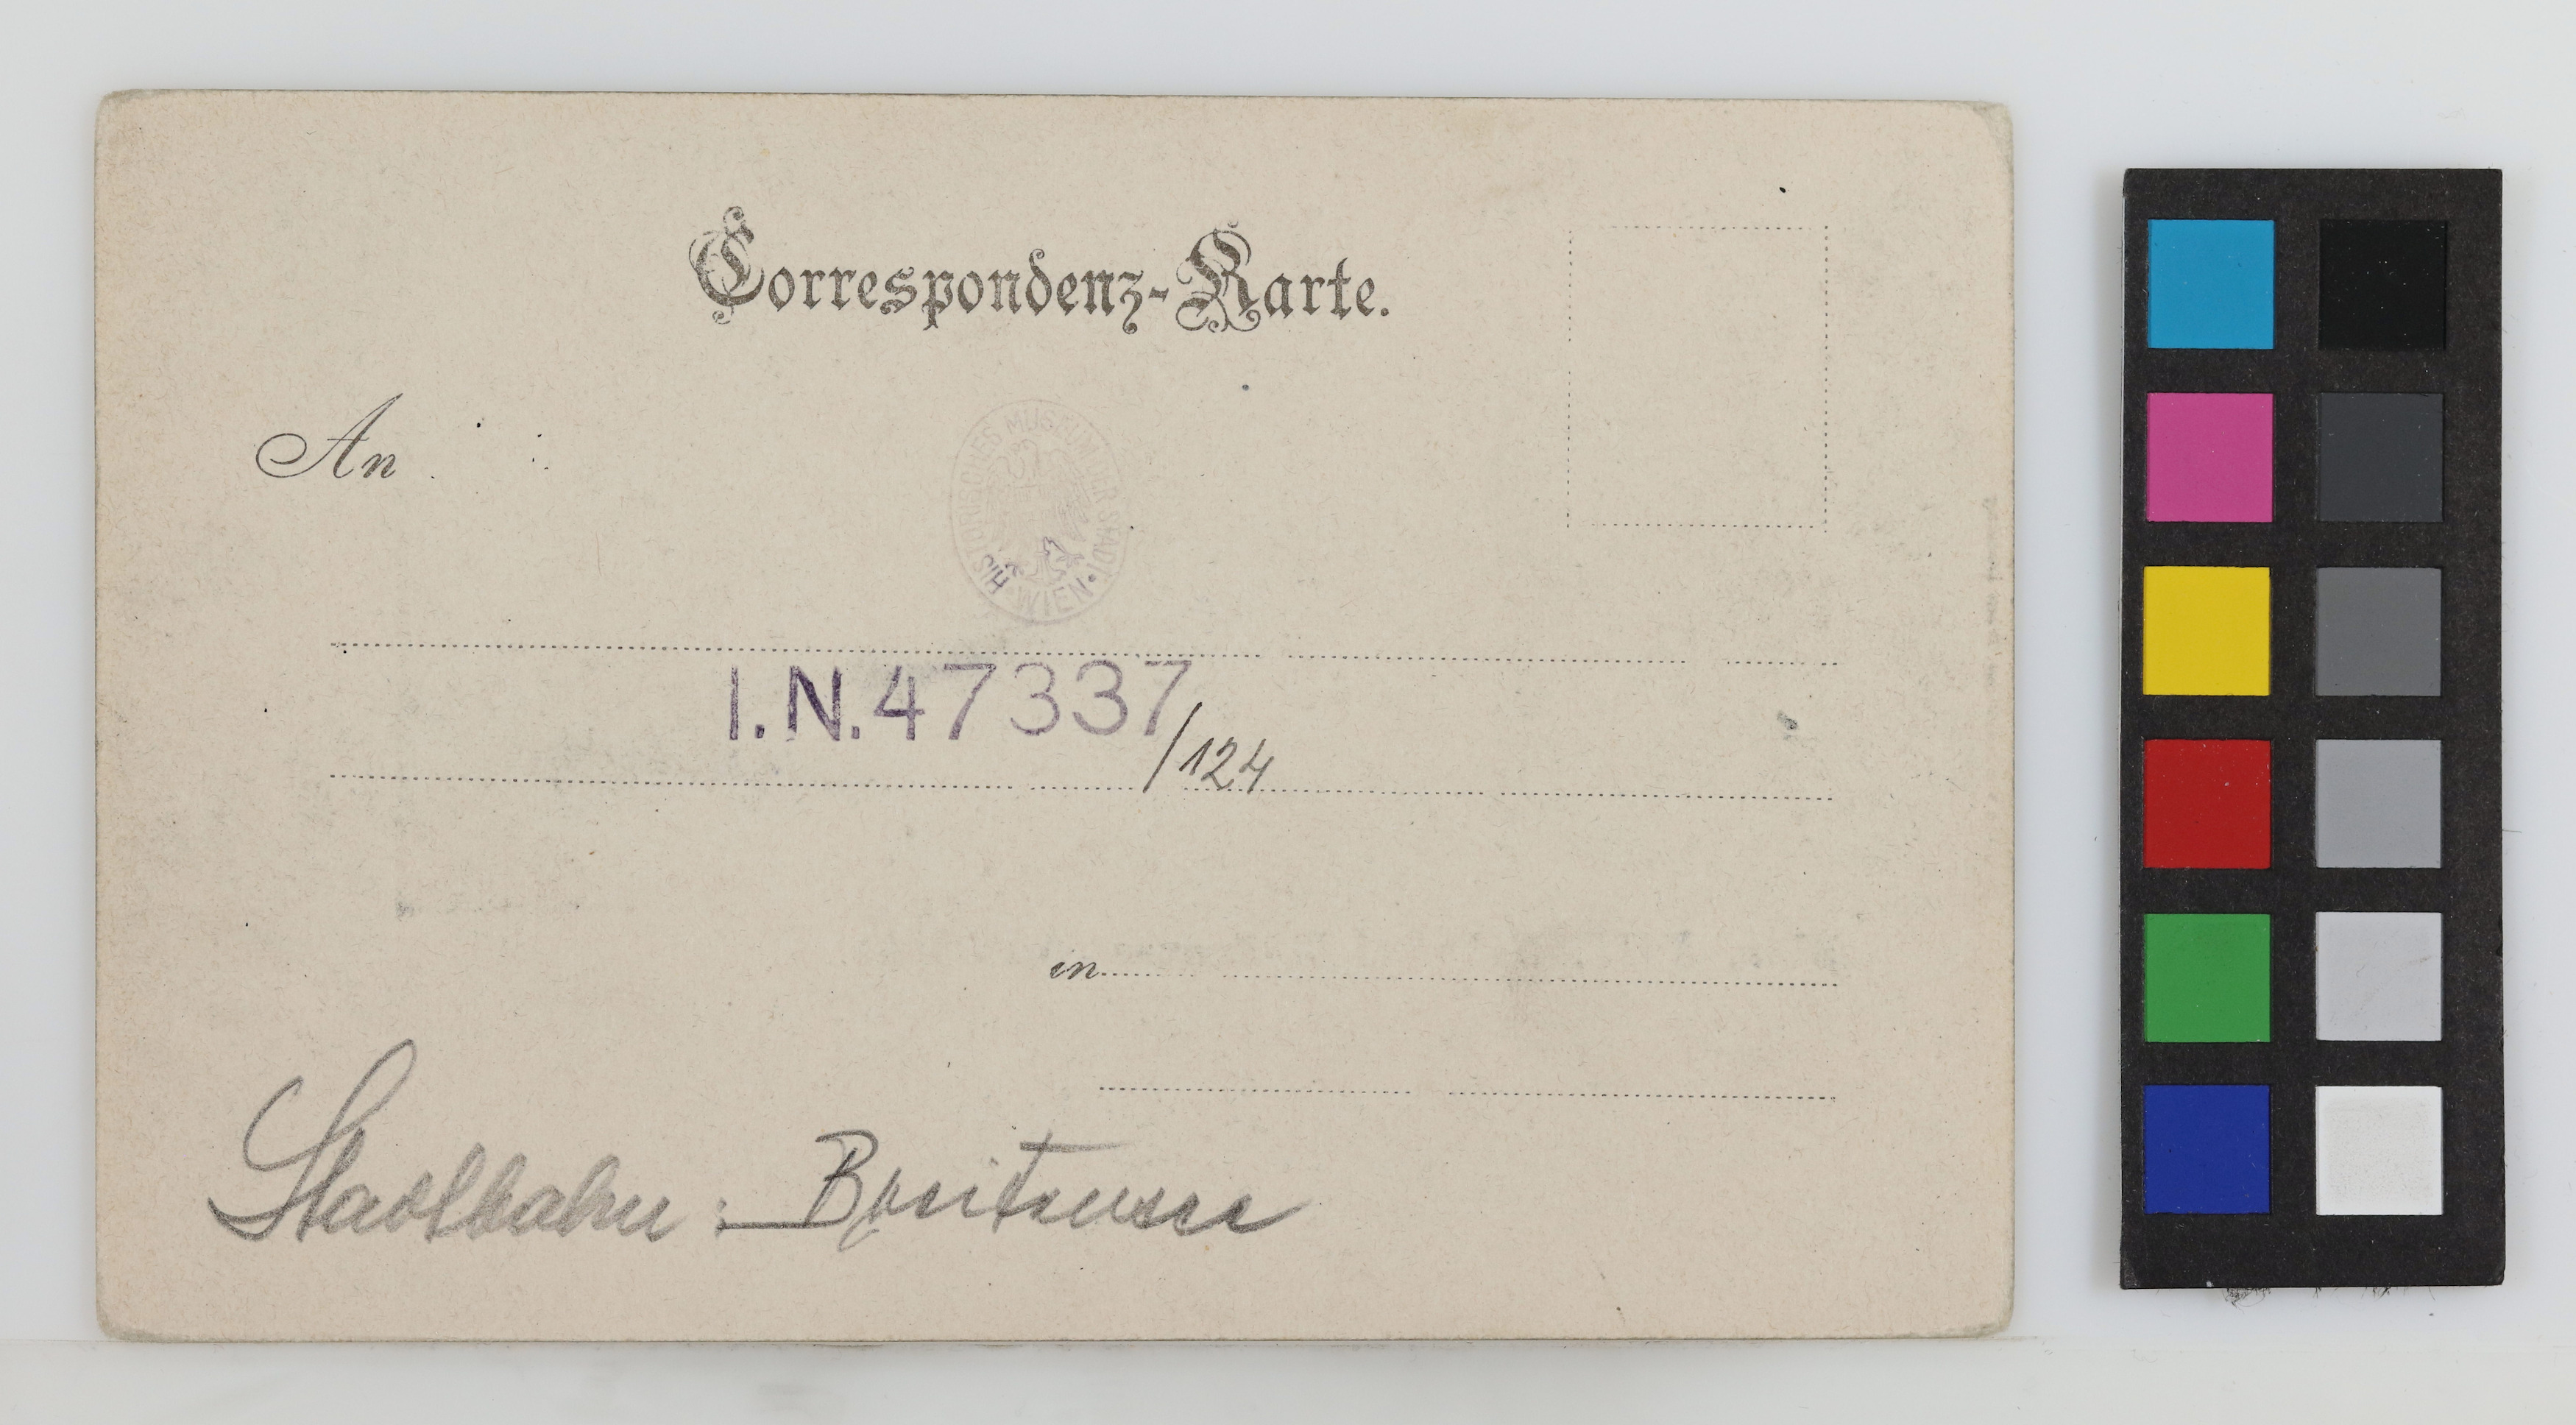 Correspondenz-Karte.
An
HISTORISCHES MUSEUM DER STADT WIEN
I.N.47337/124
in
Stadtbahn : Breitensee